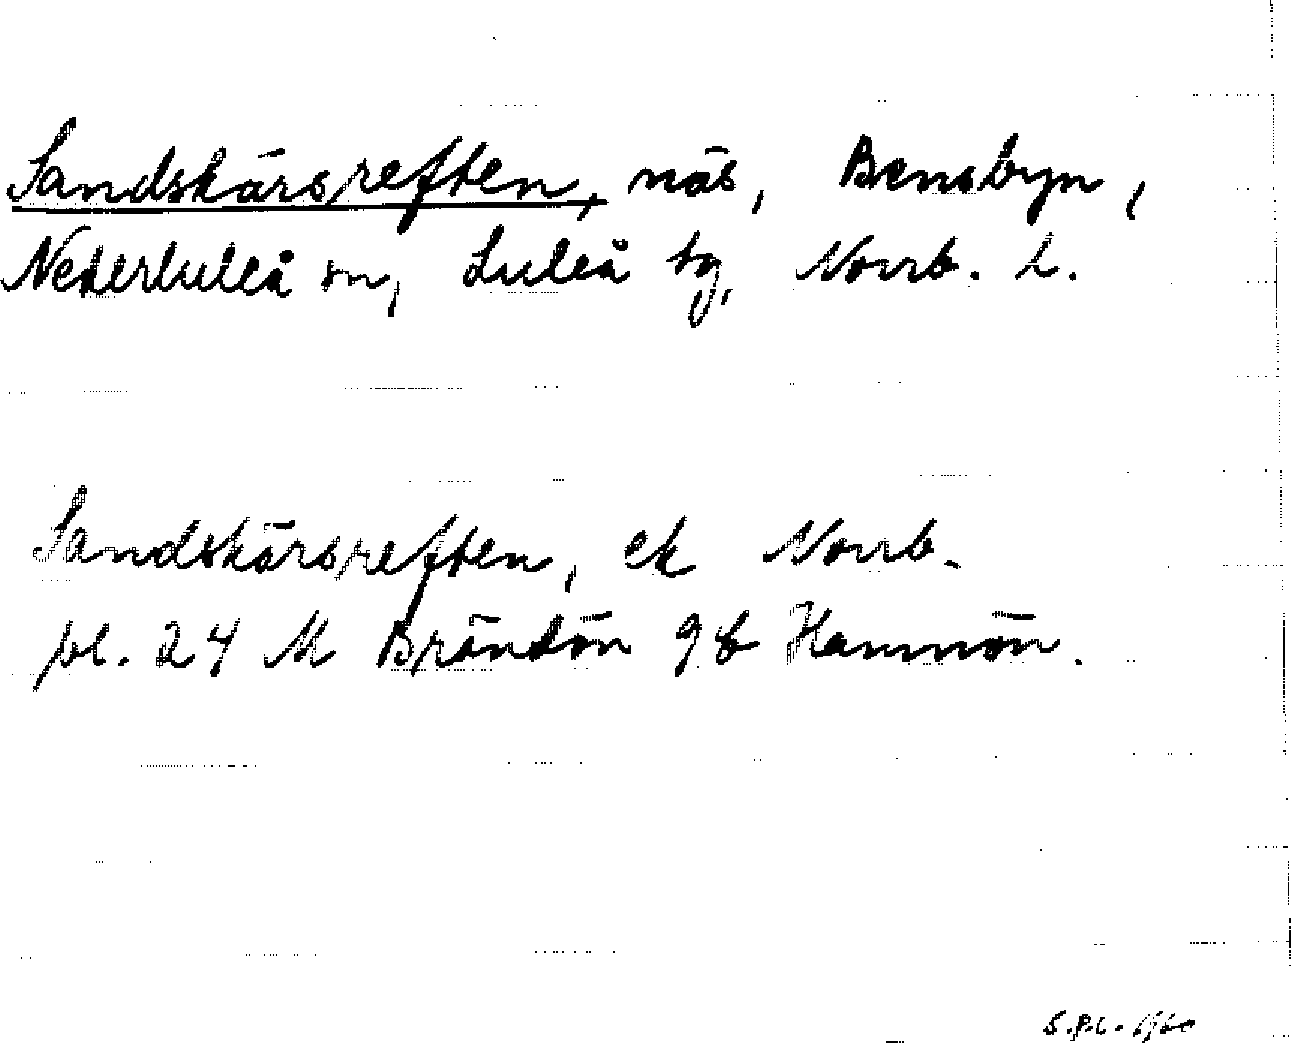 Sandskärsreften, näs, Bensbyn,
Nederluleå sn, Luleå tg, Norrb. L.
Sandskärsreften, ek Norrb.
pl. 24 M Bröndön 9 b Hamnön.